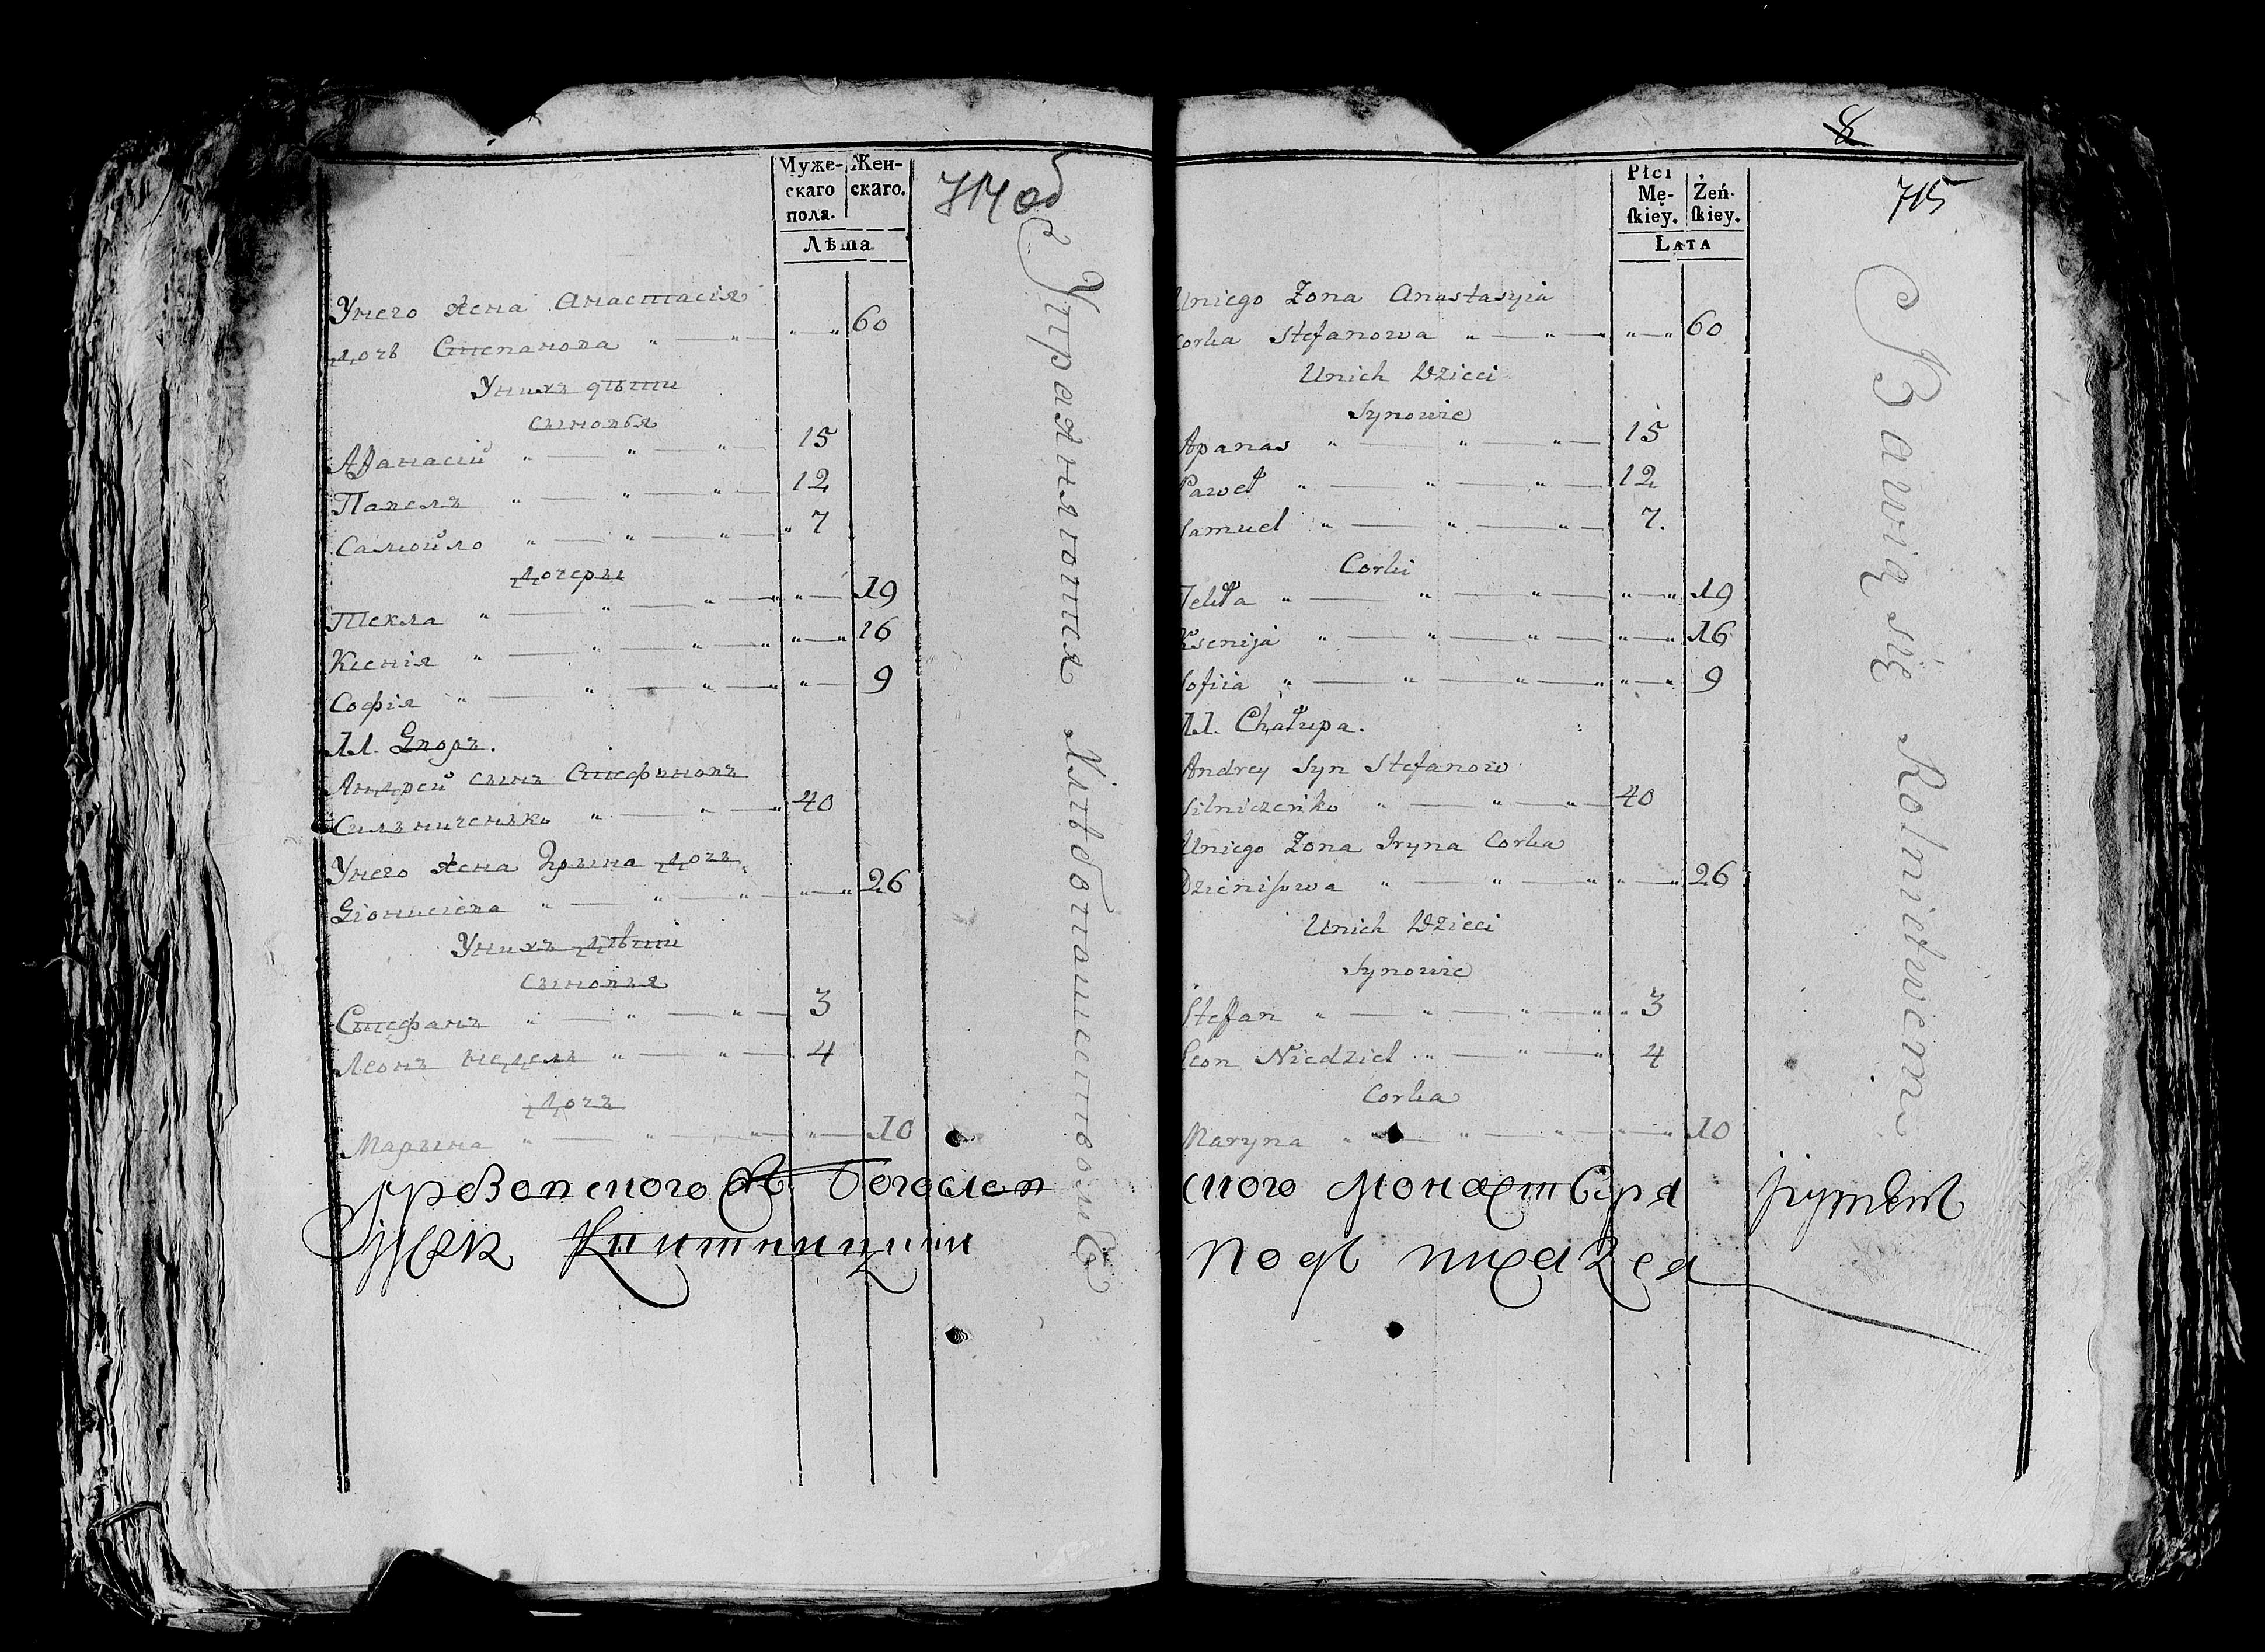 Муже-
скаго
пола.
Жен-
скаго.
Лѣта
714 об
Унего жена Анастасія
дочь Степанова 60
Унихъ дѣти
сыновья
Афанасій 15
Павелъ 12
Самойло 7
дочери
Текла 19
Ксенія 16
Софія 9
11. Дворъ.
Андрей сынъ Стефановъ
Сильниченько 40
Унего жена Ирина дочь
Діонисіева 26
Унихъ дѣти
сыновья
Стефанъ 3
Леонъ недель 4
дочь
Марина 10
Упражняются Хлѣбопашествомъ
8
715
Płci
Mę-
ſkiey.
Żeń-
ſkiey.
Lata
Uniego Żona Anastasyia
Corka Stefanowa 60
Unich Dzieci
Synowie
Apanas 15
Paweł 12
Samuel 7.
Corki
Tekła 19
Ksenija 16
Sofiia 9
11. Chałupa.
Andrey Syn Stefanow
Silniczeńko 40
Uniego Żona Iryna Corka
Dzieniſowa 26
Unich Dzieci
Synowie
Stefan 3
Leon Niedziel 4
Corka
Maryna 10
Bawią się Rolnictwem
Богослов ского Монастыря Ігуменъ
подъ писался